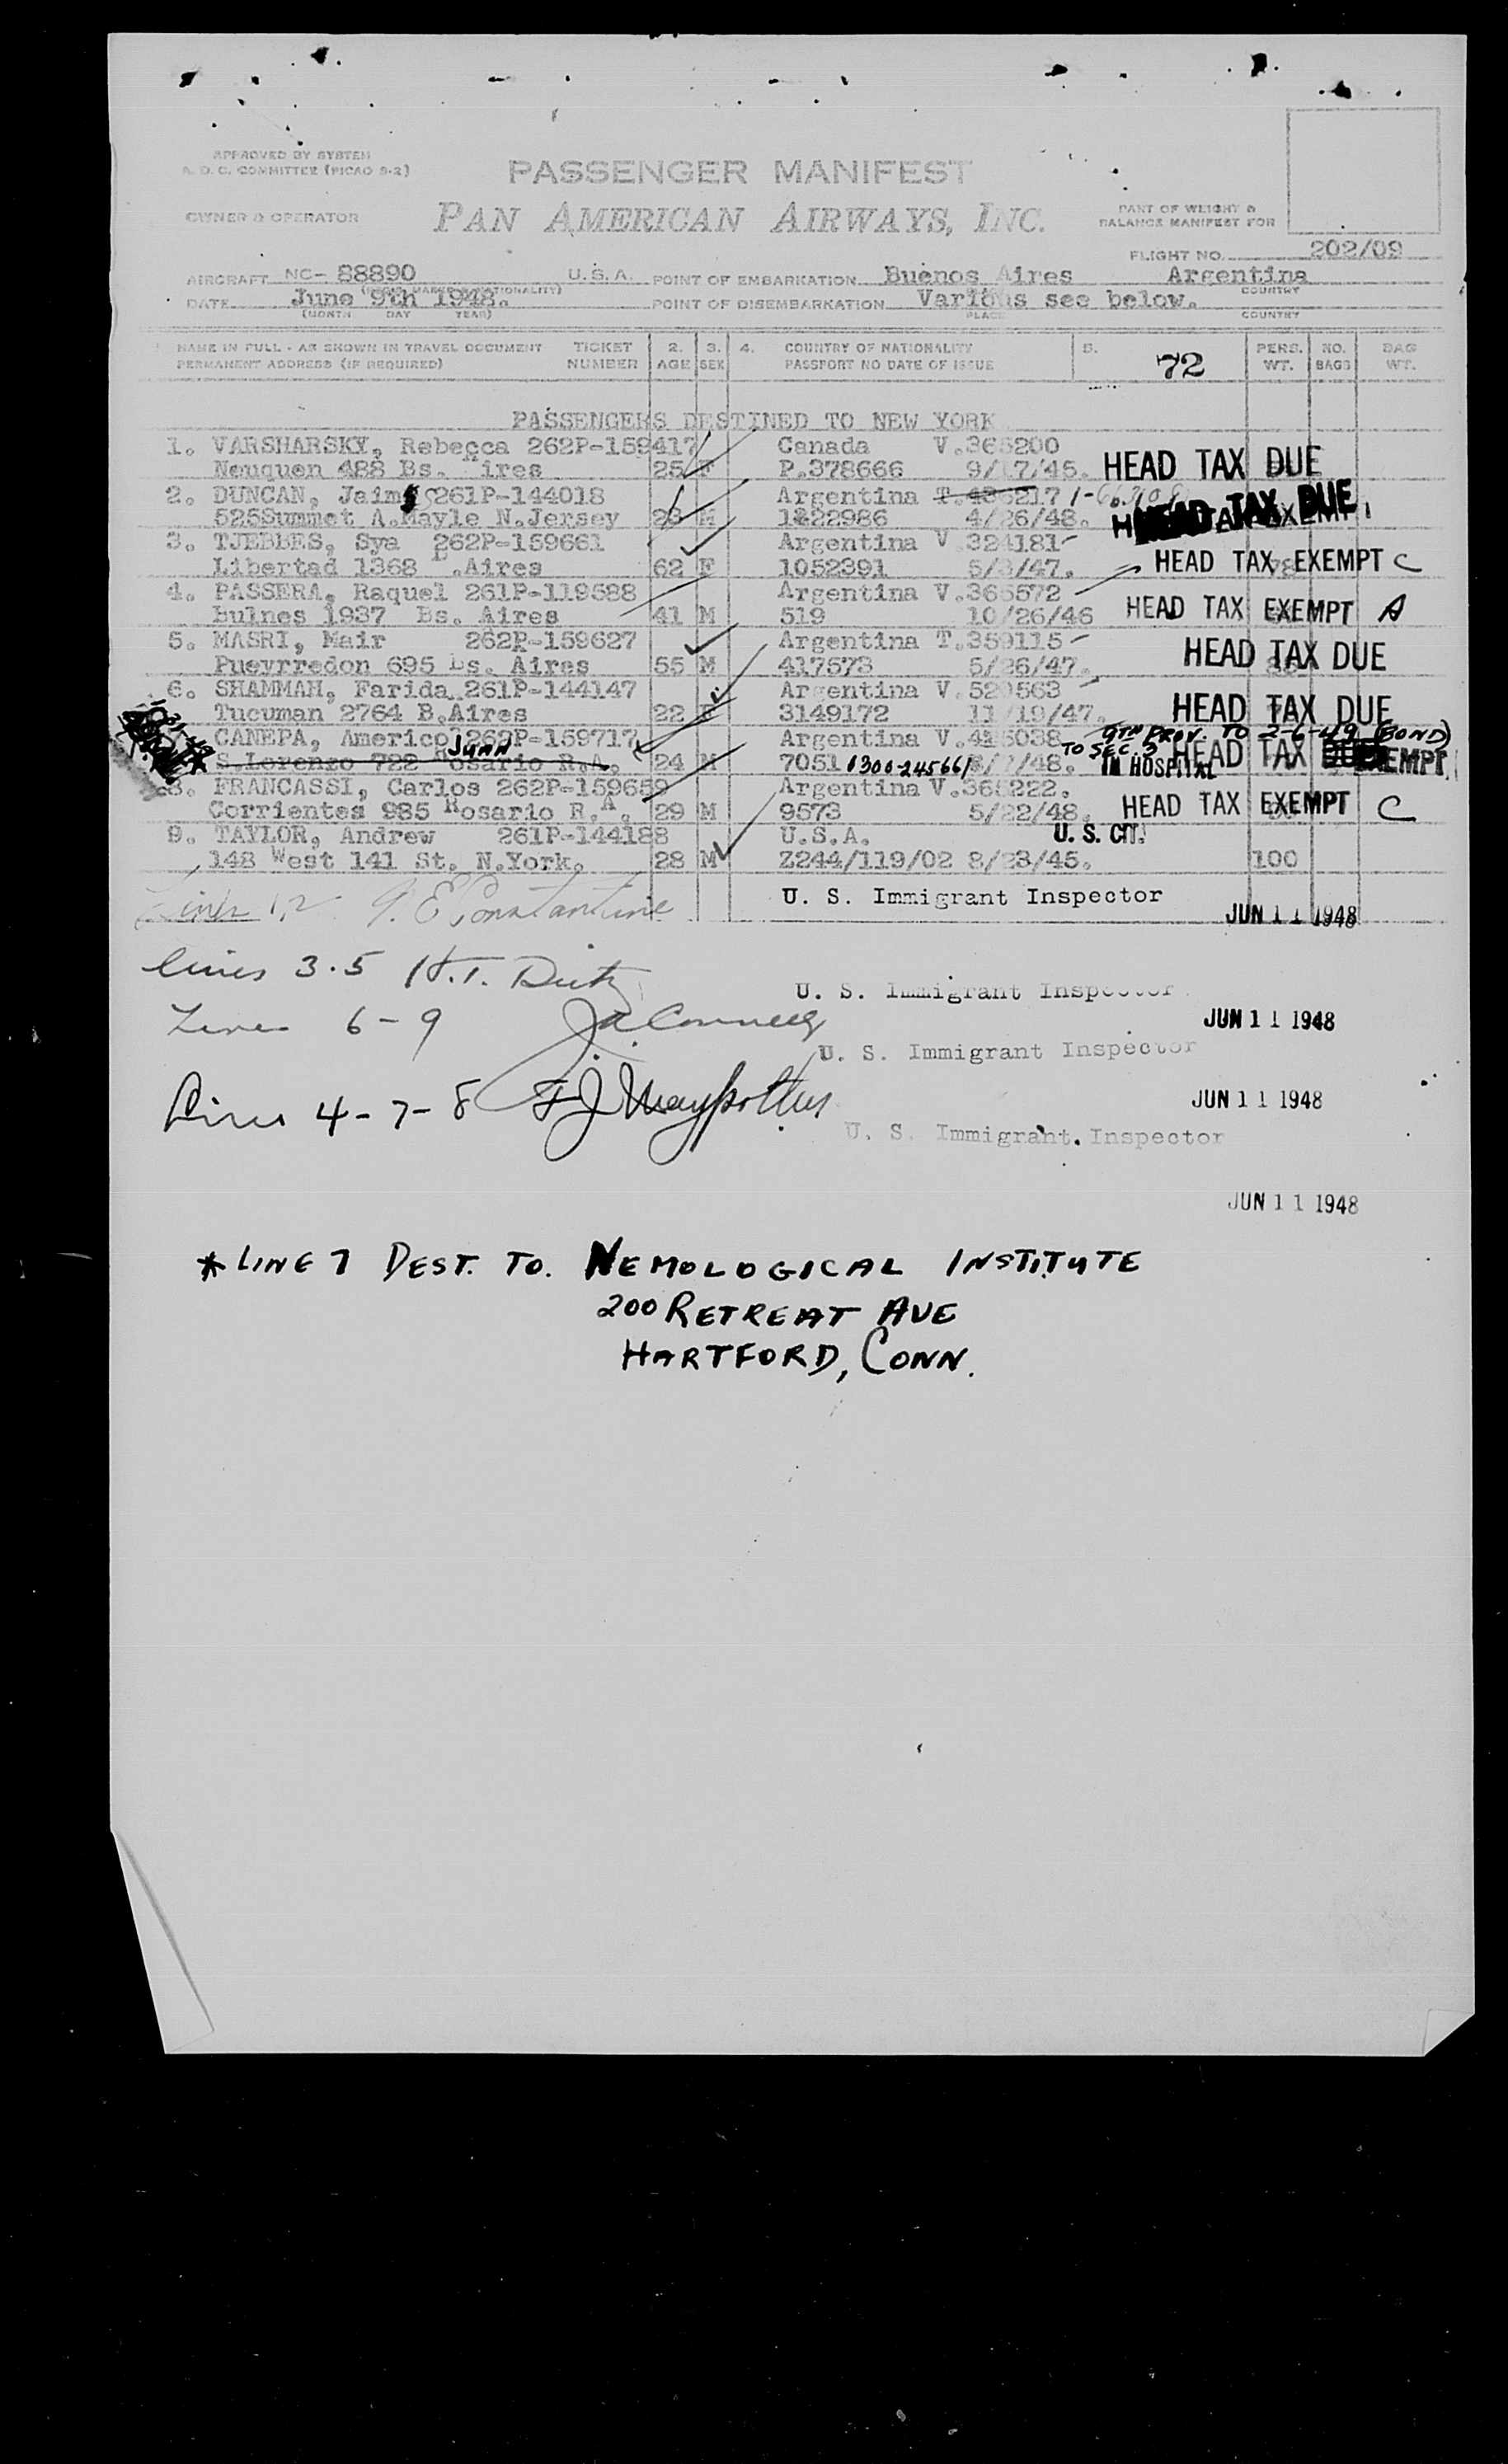 APPROVED BY SYSTEM
A. O. C. COMMITTEE (PICAO 9-2)
PASSENGER MANIFEST
OWNER & OPERATOR
PAN AMERICAN AIRWAYS, INC.
PART OF WEIGHT &
BALANCE MANIFEST FOR
FLIGHT NO. 202/09
AIRCRAFT NC- 88890 U.S.A. POINT OF EMBARKATION Buenos Aires Argentina
COUNTRY
DATE June 9th 1948. POINT OF DISEMBARKATION Various see below.
(MONTH DAY YEAR) PLACE COUNTRY
NAME IN FULL - AS SHOWN IN TRAVEL DOCUMENT TICKET 2. 3. 4. COUNTRY OF NATIONALITY 5. 72 PERS. NO. BAG
PERMANENT ADDRESS (IF REQUIRED) NUMBER AGE SEX PASSPORT NO DATE OF ISSUE WT. BAGS WT.
PASSENGERS DESTINED TO NEW YORK
1. VARSHARSKY, Rebecca 262P-159417 Canada V.365200
Neuquen 488 Bs. Aires 25 F P.378666 9/17/45. HEAD TAX DUE
2. DUNCAN, Jaim 261P-144018 Argentina
525Summet A.Mayle N.Jersey 23 M 1&22986 4/26/48. HEAD TAX DUE
3. TJEBBES, Sya 262P-159661 Argentina V 324181
Libertad 1368 B.Aires 62 F 1052391 5/3/47. HEAD TAX EXEMPT C
4. PASSERA, Raquel 261P-119588 Argentina V.365572
Bulnes 1937 Bs. Aires 41 M 519 10/26/46 HEAD TAX EXEMPT A
5. MASRI, Mair 262P-159627 Argentina T.359115
Pueyrredon 695 Bs. Aires 55 M 417573 5/26/47. HEAD TAX DUE
6. SHAMMAH, Farida 261P-144147 Argentina V.520563
Tucuman 2764 B.Aires 22 F 3149172 11/19/47. HEAD TAX DUE
CANEPA, Americo JUAN 262P-159717 Argentina 9TH PROV. TO 2-6-49 (BOND)
S.Lorenzo 722 Rosario R.A. 24 M 7051 0300-24566 TO SEC. 3 IN HOSPITAL HEAD TAX EMPT
8. FRANCASSI, Carlos 262P-159659 Argentina V.366222.
Corrientes 985 Rosario R.A. 29 M 9573 5/22/48. HEAD TAX EXEMPT C
9. TAYLOR, Andrew 261P-144188 U.S.A. U. S. CIT.
148 West 141 St. N.York. 28 M Z244/119/02 8/23/45. 100
Lines 1,2 U. S. Immigrant Inspector
JUN 11 1948
lines 3.5 H.T. U. S. Immigrant Inspector
Lines 6-9 J.A. JUN 11 1948
U. S. Immigrant Inspector
Lines 4-7-8 F J JUN 11 1948
U. S. Immigrant Inspector
JUN 11 1948
* LINE 7 DEST. TO. NEMOLOGICAL INSTITUTE
200 RETREAT AVE
HARTFORD, CONN.